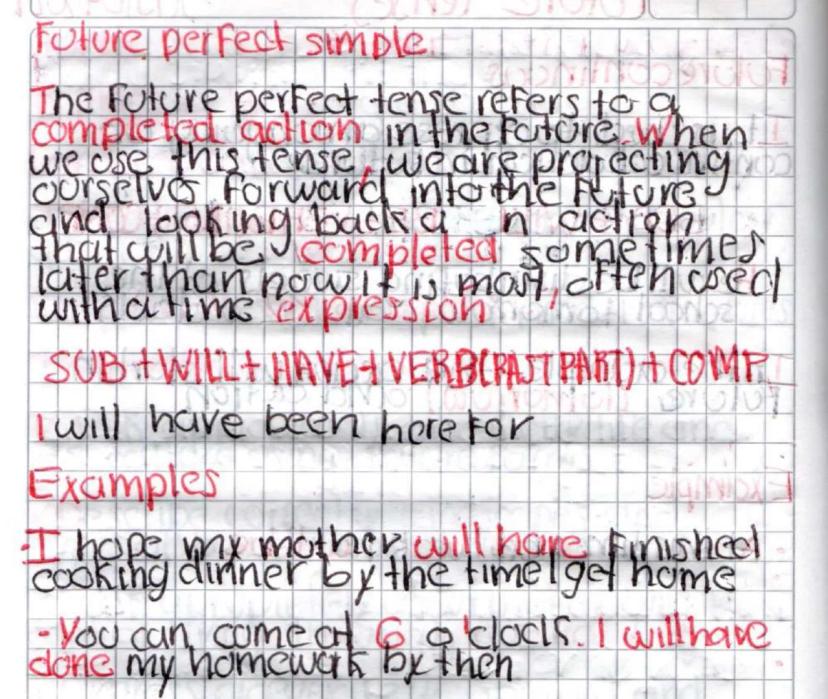 Future perfect simple.
The future perfect tense refers to a
completed action in the future. When
we use this tense, we are projecting
ourselves forward into the future
and looking back a n action
that will be completed sometimes
later than now it is most, often used
with a time expression
SUB + WILL + HAVE + VERB(PAST PART) + COMP.
I will have been here for
Examples
·I hope my mother will have finished
cooking dinner by the time I get home
-You can come at 6 o'clock. I will have
done my homework by then